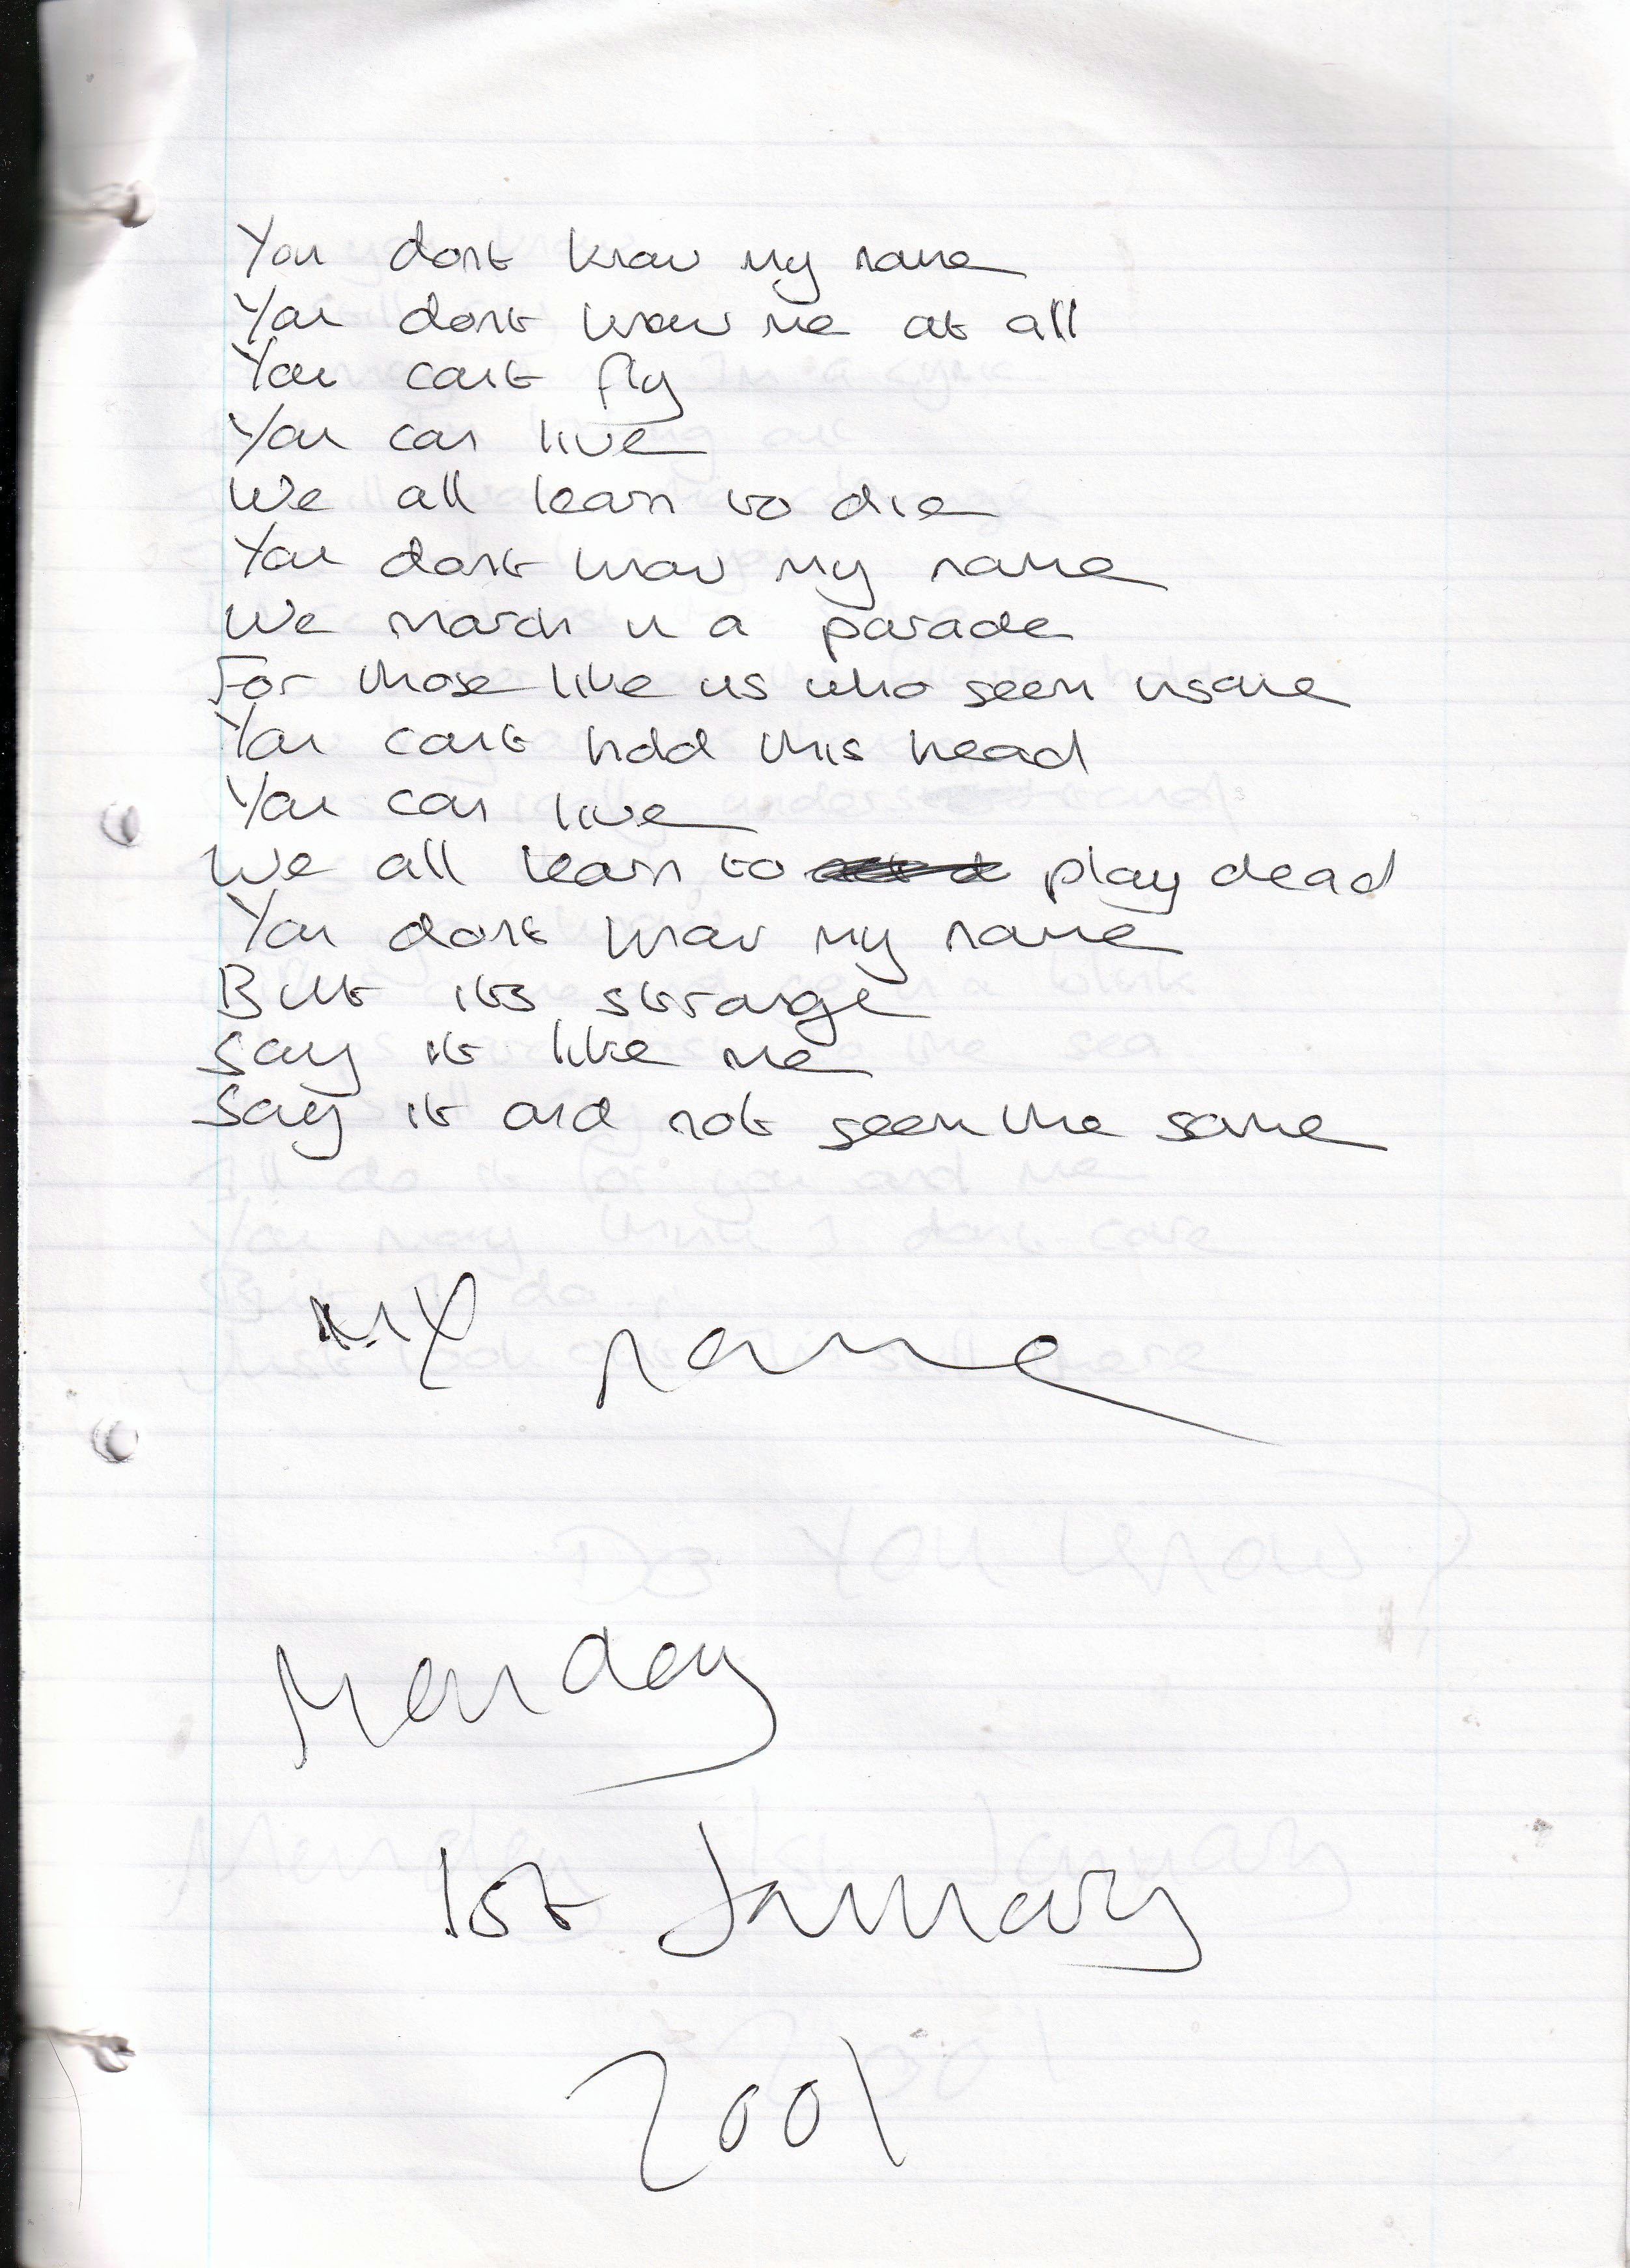 You dont know my name
You dont know me at all
You cant fly
You can live
We all learn to die
You dont know my name
We march in a parade
For those like us who seem insane
You cant hold this head
You can live
We all learn to play dead
You dont know my name
But its strange
Say it like me
Say it and not seem the same
MY name
Monday
1st January
2001